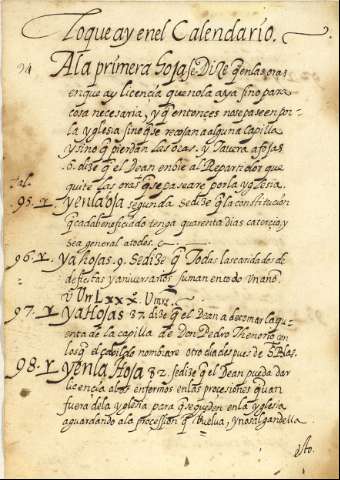 Lo que ay en el Calendario.
94 A la primera hoja se Dize q en las oras
en que ay licencia que no la aya sino para
cosa necesaria, y q entonces no se paseen por
la yglesia sino que recojan a alguna capilla
y si no q pierdan las oras. y
6. dize q el Dean embie al Repartidor que
quite las oras q se paseare por la yglesia.
95. y en la oja segunda se dize q la constitución
q cada beneficiado tenga quarenta dias
sea general a todos.
96. y a hojas. 9. se dize q Todas las
de fiestas y aniversarios suman en todo un año
97. y a Hojas 82 dize q el Dean a de tomar la que-
nta de la capilla de Don Pedro Thenorio con
los q el cabildo nombrare otro dia despues de S. Blas.
98. y en la Hoja 82. se dize q el Dean pueda dar
licencia a los enfermos en las procesiones q van
fuera de la yglesia para q se queden en la yglesia
aguardando a la procession q buelva, y no salgan della